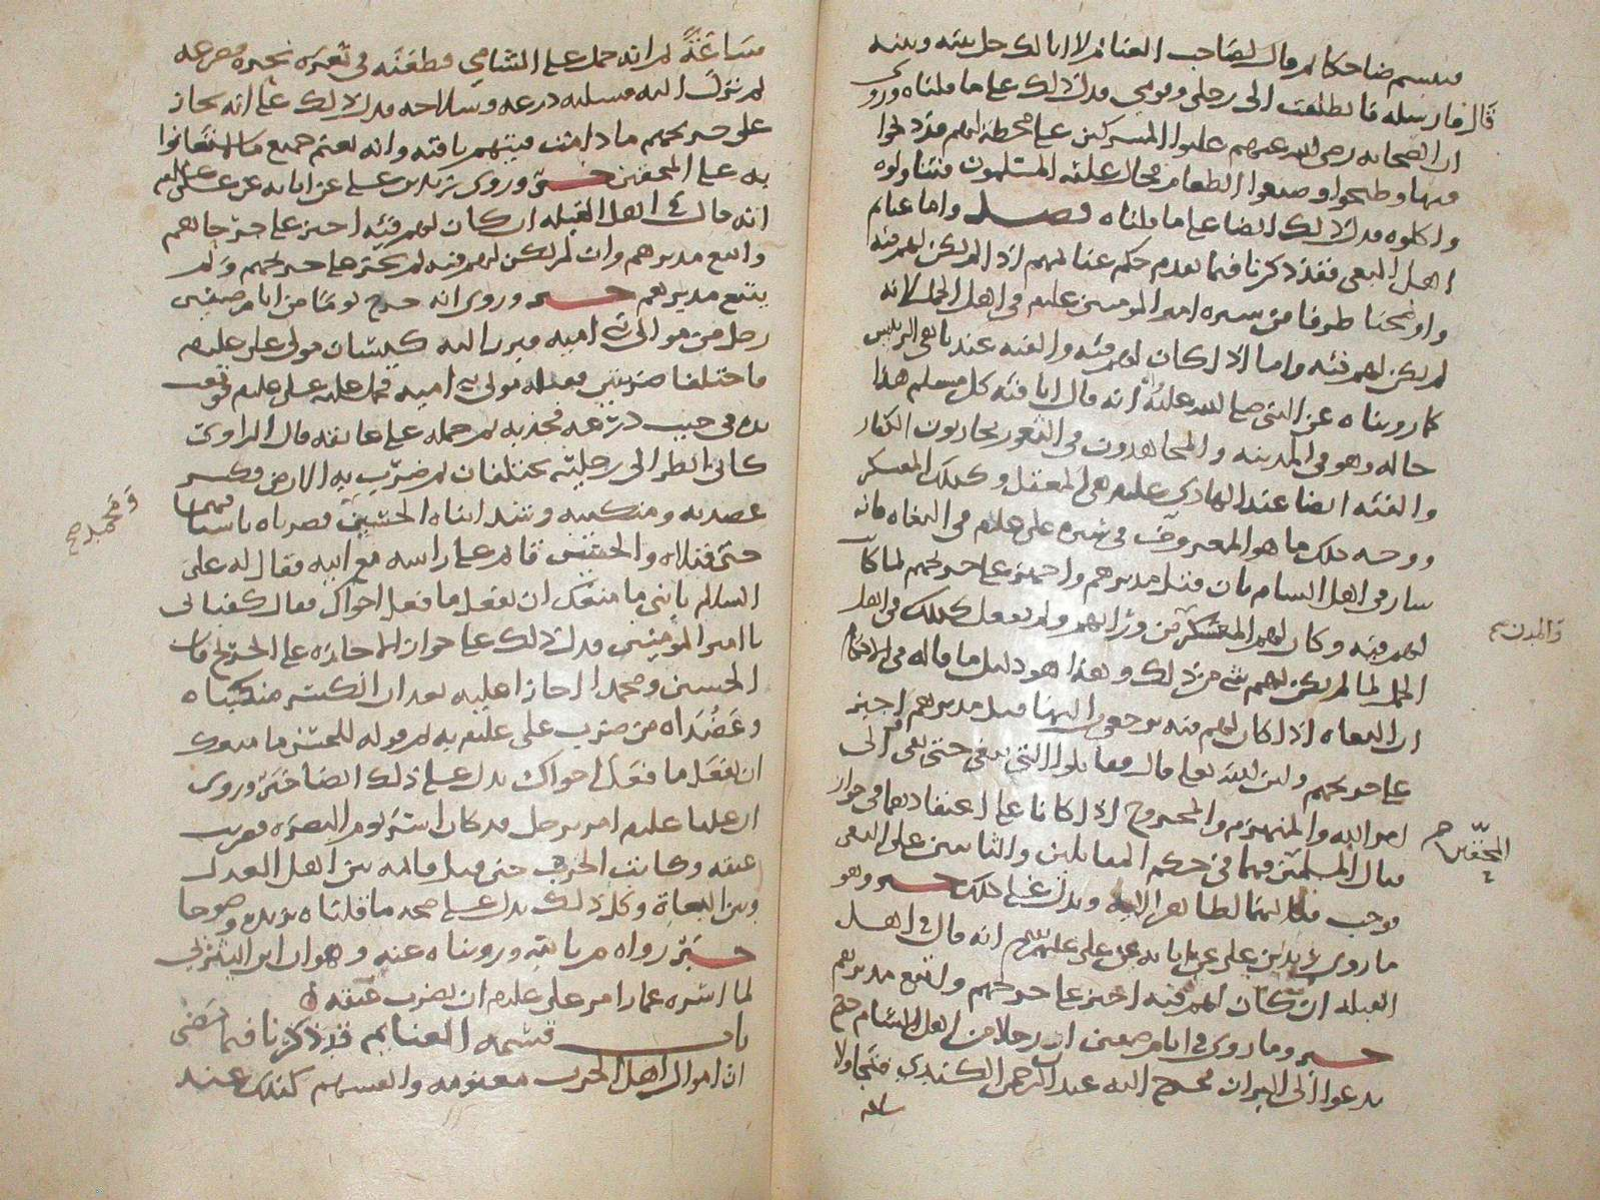 فتبسم ضاحكا ثم قال لصاحب الغنائم لا ابا لك حل بينه وبينه
قال فارسله فانطلقت الى رحلي وقومي فدل ذلك على ما قلناه وروي
ان الصحابه رضي الله عنهم غلبوا المشركين على محطة لهم قد ذبحوا
فيها وطبخوا وصنعوا الطعام فحاز عليه المسلمون فتناولوه
واكلوه فدل ذلك ايضا على ما قلناه فصل واما غنائم
اهل البغي فقد ذكرنا فيما تقدم حكم غنائمهم اذا لم يكن لهم فئه
واوضحنا طرفا من سيره امير المومنين عليلم في اهل الجمل لانه
لم يكن لهم فئه واما اذا كان لهم فئه والفئه عندنا هي الرئيس
كما رويناه عن النبي صلى الله عليه انه قال انا فئه كل مسلم هذا
حاله وهو في المدينه والمجاهدون في الثغور يحاربون الكفار
والفئه ايضا عند الهادي عليلم هي المعقل وكذلك العسكر
ووجه ذلك ما هو المعروف في سيره علي عليلم في البغاه فانه
سار في اهل الشام بان قتل مدبرهم واجهز على جريحهم لما كان
لهم فئه وكان لهم العسكر من ورائهم ولم يفعل كذلك في اهل
الجمل لما لم يكن لهم شي من ذلك وهذا هو دليل ما قاله في الاحكام
ان البغاه اذا كان لهم فئه يرجعون اليها قتل مدبرهم اجيز
على جريحهم ولان الله تعالى قال فقاتلوا التي تبغي حتى تفي الى
امر الله والمنهزم والمجروح اذا كانا على اعتقادهما في جواز
قتال المسلمين فهما في حكم المقاتلين والثابتين على البغي
فوجب قتالهما لظاهر الايه ويدل على ذلك خبر وهو
ما روى زيد بن علي عن ابايه عن علي عليهم السلم انه قال في اهل
القبله ان كان لهم فئه اجيز على جريحهم واتبع مدبرهم
خبر وما روي في ايام صفين ان رجلا من اهل الشام خرج
يدعوا الى البراز فخرج اليه عبد الرحمن الكندي فتجاولا
ساعه
والمدن
المجففين
ساعة ثم انه حمل على الشامي فطعنه في ثغره نحره فصرعه
ثم نزل اليه فسلبه درعه وسلاحه فدل ذلك على انه يجاز
على جريحهم ما دامت فيتهم باقيه وانه يغنم جميع ما استعانوا
به على المحقين خبر وروى زيد بن علي عن ابايه عن علي عليلم
انه قال في اهل القبله ان كان لهم فئه اجيز على جرحاهم
واتبع مدبرهم وان لم يكن لهم فئه لم يجتز على جريحهم ولم
يتبع مدبرهم خبر وروي انه خرج يوما من ايام صفين
رجل من موالي بني اميه فبرز اليه كيسان مولى علي عليلم
فاختلفا ضربتين فقتله مولى بني اميه فحمل عليه علي عليلم فوقعت
يده في جيب درعه فجذبه ثم حمله على عاتقه قال الراوي
كاني انظر الى رجليه تختلفان ثم ضرب به الارض فكسر
عضديه ومنكبيه وشد ابناه الحسين فضرباه باسيافهما
ومحمد صح
حتى قتلاه والحسن قائم على راسه مع ابيه فقال له علي
السلام يا بني ما منعك ان تفعل ما فعل اخواك فقال كفياني
يا امير المومنين فدل ذلك على جواز الاجازه على الجريح فان
الحسين ومحمدا اجازا عليه بعد ان انكسر منكباه
وعضداه من ضرب علي عليلم به ثم قوله للحسن ما منعك
ان تفعل ما فعل اخواك يدل على ذلك ايضا خبر وروي
ان عليا عليلم امر برجل قد كان استر يوم البصره فضربت
عنقه وكانت الحرب حتى قتل قائمه بين اهل العدل
وبين البغاة وكل ذلك يدل على صحه ما قلناه يزيده وضوحا
خبر رواه م بالله ورويناه عنه وهو ان ابن اليثربي
لما اسره عمار امر علي عليلم ان يضرب عنقه
باب قسمه الغنايم قد ذكرنا فيما مضى
ان اموال اهل الحرب مغنومه والقسم كذلك عند